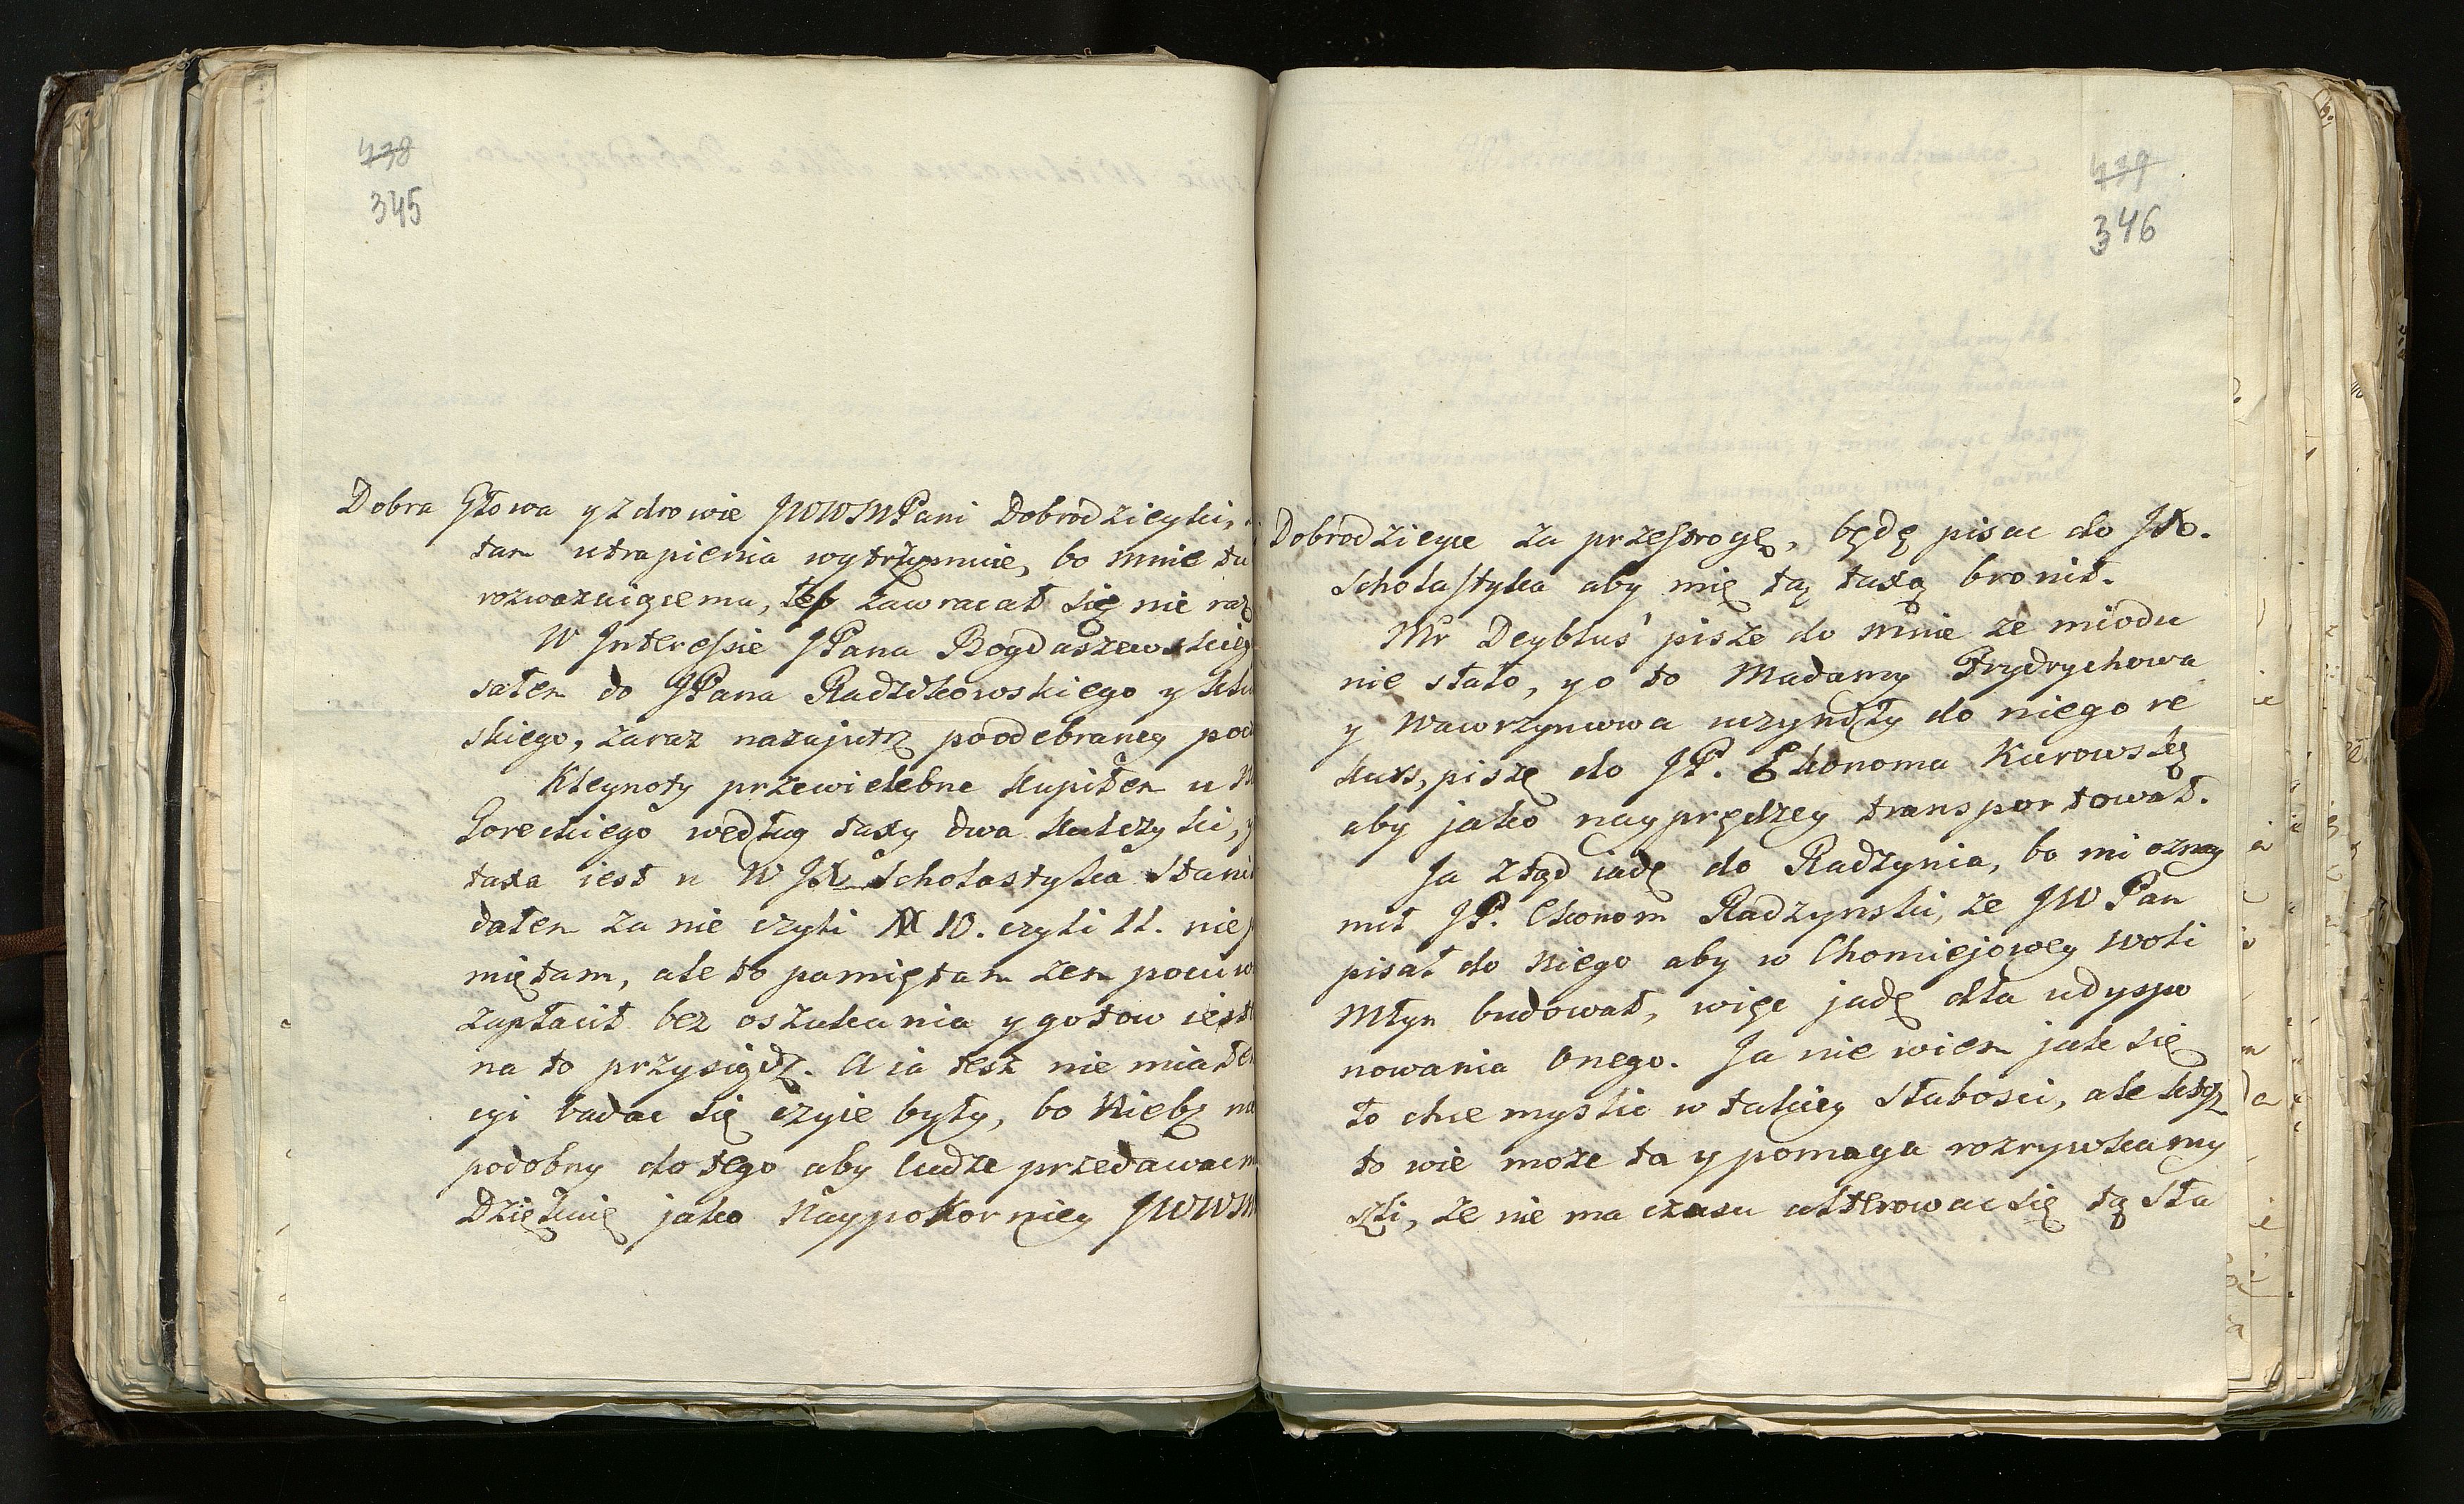 438
345
Dobra Głowa y zdrowie JWWMPani Dobrodzieyki,
tam utrapienia wytrzymuie, bo mnie tu
rozwazaiącemu, łeb zawracał się nie raz
W Interessie JPana Bogdaszewskieg
sałem do JPana Radzikowskiego y
skiego, zaraz nazajutrz poodebraney poc
Kleynoty przewielebne kupiłem u
Goreckiego według taxy dwa kulczyki, y
taxa iest u W JX Scholastyka Stani
dałem za nie czyli # 10. czyli 11. nie
miętam, ale to pamiętam zem pocciw
zapłacił bez oszukania y gotow iest
na to przysiądz. A ia tesz nie miałe
cyi badac się czyie były, bo Xiebz na
podobny do tego aby ludze przedawac
Dziękuię jako Naypokorniey JWWM
439
346
Dobrodzieyce za przestrogę, będę pisac do JX.
Scholastyka aby mię tą taxą bronił.
Mr Deyblus pisze do mnie ze miodu
nie stało, y o to Madamy Frydrychowa
y Wawrzyncowa uczyniły do niego re
kurs, piszę do JP. Ekonoma Kurowskę
aby jako nayprędzey transportował.
Ja ztąd iadę do Radzynia, bo mi oznay
mił JP. Ekonom Radzynski, ze JW Pan
pisał do Niego aby w Chomiejowey Woli
Młyn budował, więc jadę dla udyspo
nowania Onego. Ja nie wiem jak się
to chce myslic w takiey Słabosci, ale ktosz
to wie moze ta y pomaga rozrywka my
szli, ze nie ma czasu alterowac się tą Sła